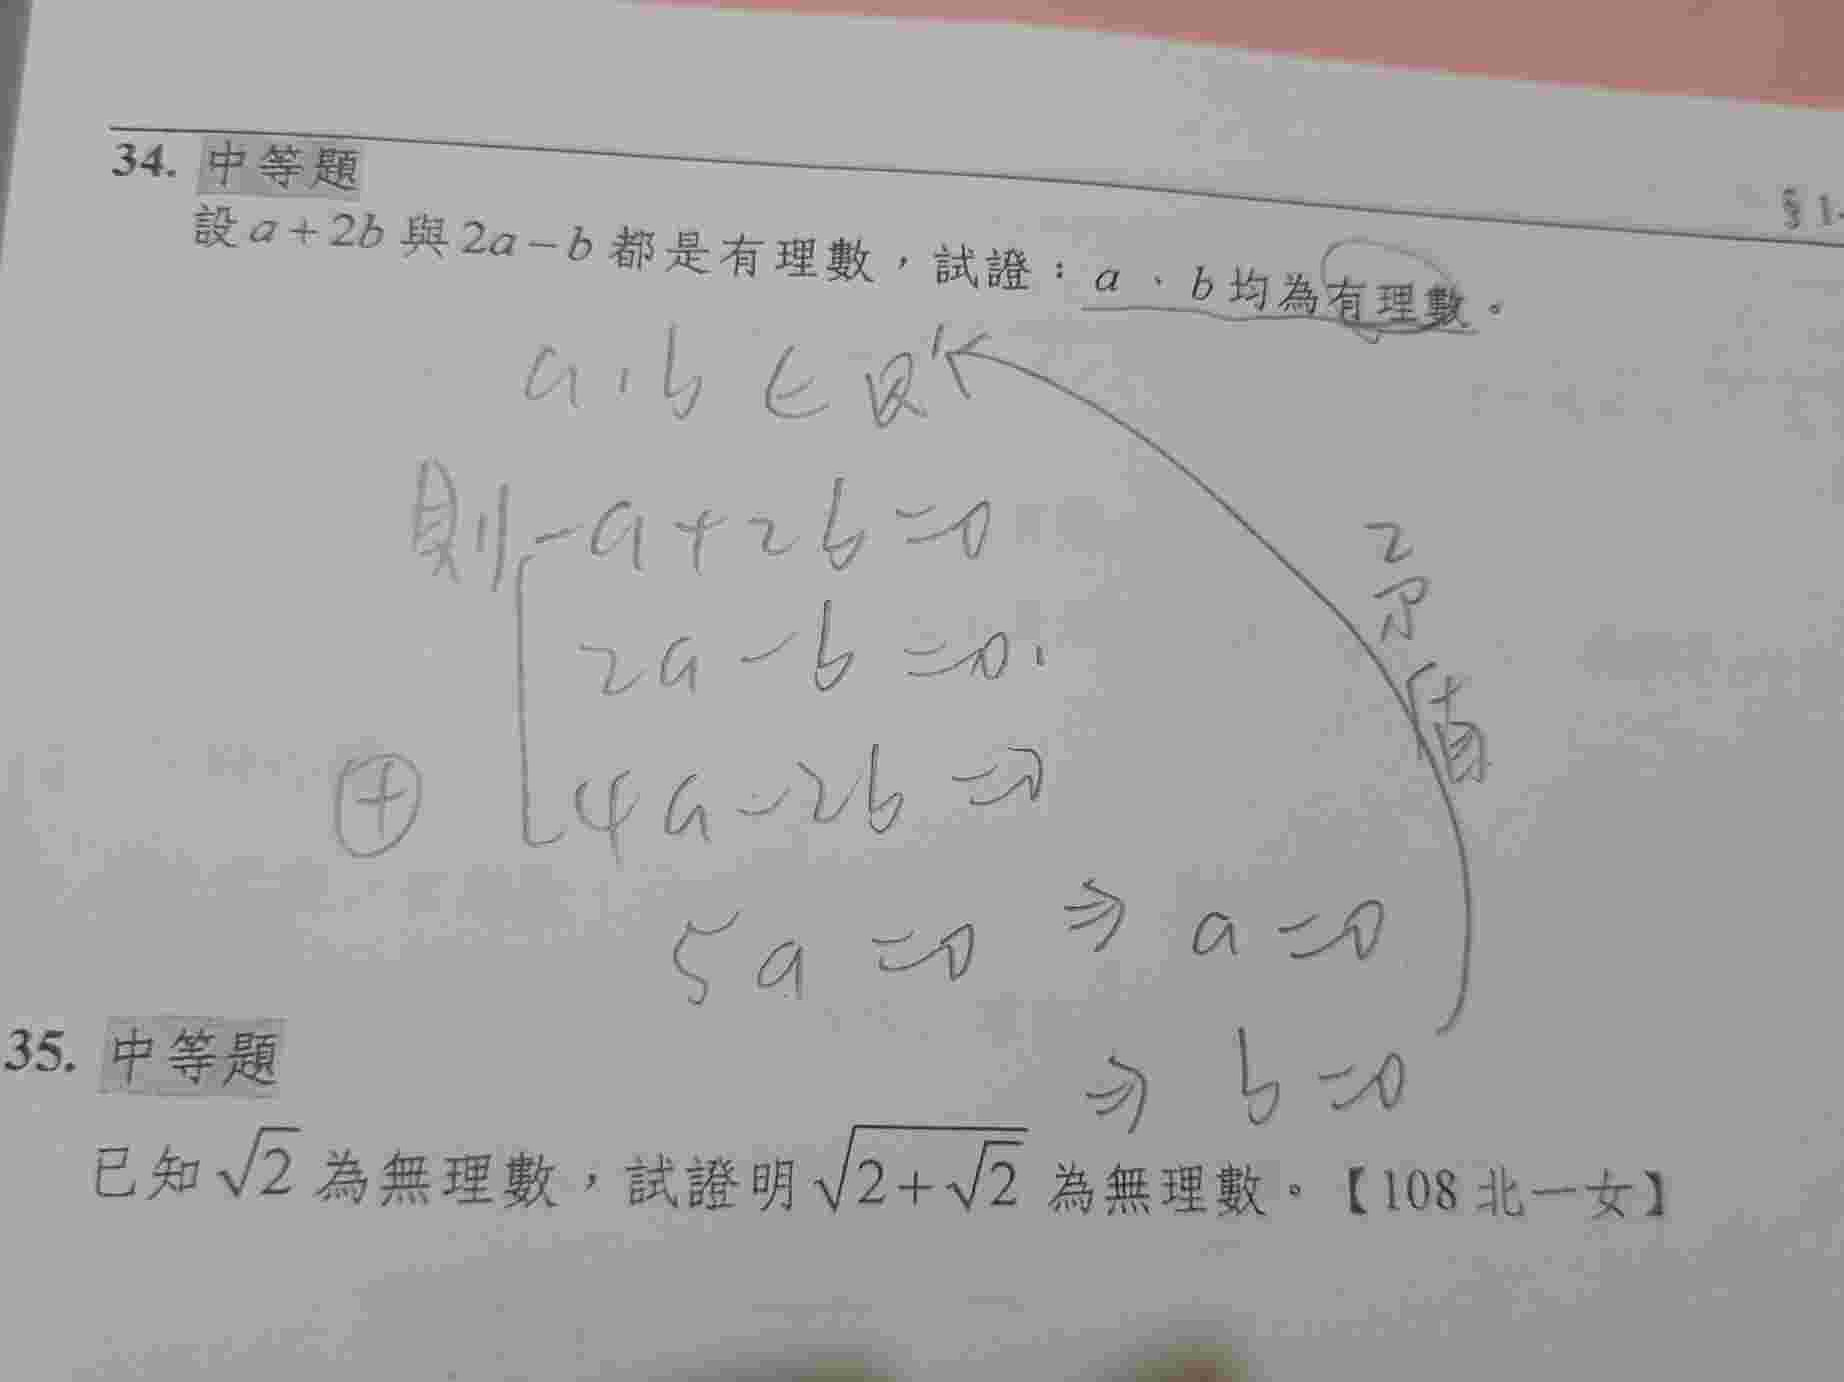 34. 中等題
§1-
設 a+2b 與 2a−b 都是有理數，試證：a、b 均為有理數。
a,b ∈ Q'
則 a+2b=0
2a−b=0
⊕ 4a−2b=0
矛
盾
5a=0 ⇒ a=0
⇒ b=0
35. 中等題
已知 √2 為無理數，試證明 √(2+√2) 為無理數。【108 北一女】